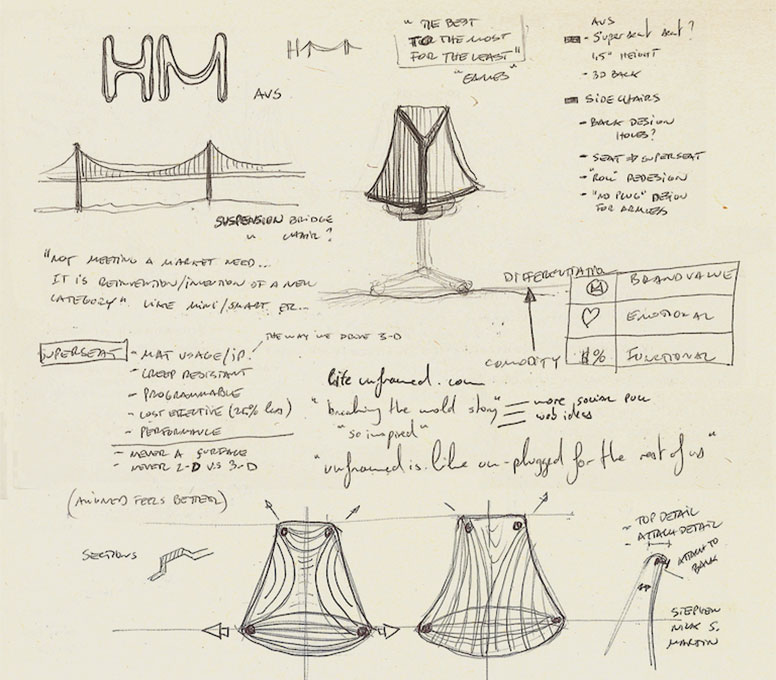 HM
HM
AVS
"THE BEST
TO THE MOST
FOR THE LEAST"
"EAMES"
AVS
- SUPERSEAT SEAT?
1,5" HEIGHT
- 3D BACK
SIDE CHAIRS
- BACK DESIGN
HOLES?
- SEAT => SUPERSEAT
- "ROLL" REDESIGN
- "NO PLUG" DESIGN
FOR ARMLESS
SUSPENSION BRIDGE
CHAIR?
"NOT MEETING A MARKET NEED...
IT IS REINVENTION/INVENTION OF A NEW
CATEGORY" LIKE MINI/SMART, ETC...
DIFFERENTIATION
COMODITY
M BRAND VALUE
EMOTIONAL
$% FUNCTIONAL
THE WAY WE DRIVE 3-D
SUPERSEAT
- MAT USAGE/IP.
- CREEP RESISTANT
- PROGRAMMABLE
- COST EFFECTIVE (25% LESS)
- PERFORMANCE
- NEVER A SURFACE
- NEVER 2-D VS 3-D
life unframed.com
"breaking the mold story"
more social pull
web ideas
"so inspired"
"unframed is like un-plugged for the rest of us"
(ALIGNED FEELS BETTER)
SECTIONS
- TOP DETAIL
- ATTACH DETAIL
ATTACH TO
BACK
STEPHEN
NICK S.
MARTIN